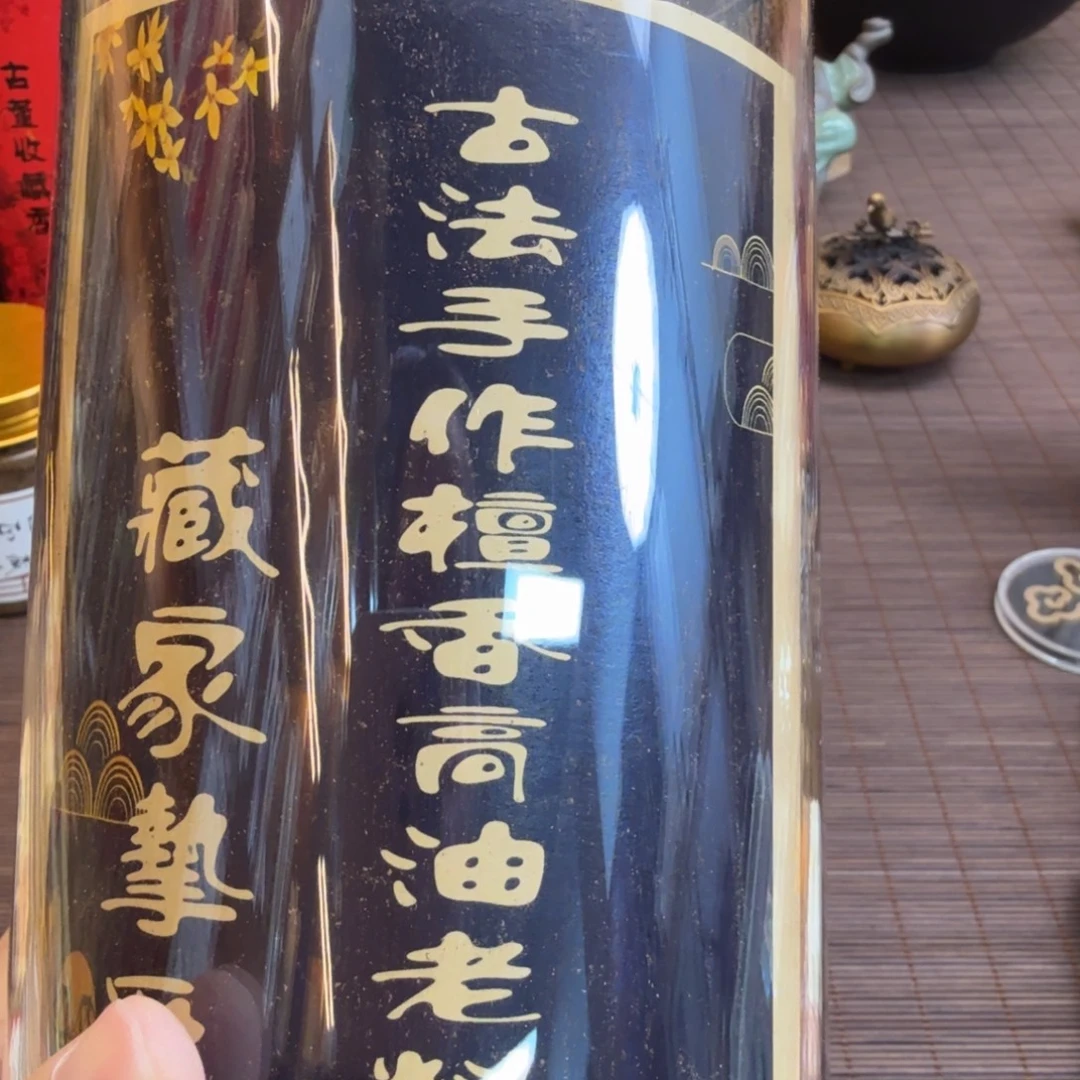 古法手作檀香高油老
藏家摯
古董收藏香